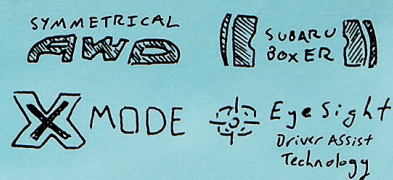 SYMMETRICAL
AWD
SUBARU
BOXER
X MODE
EyeSight
Driver Assist
Technology